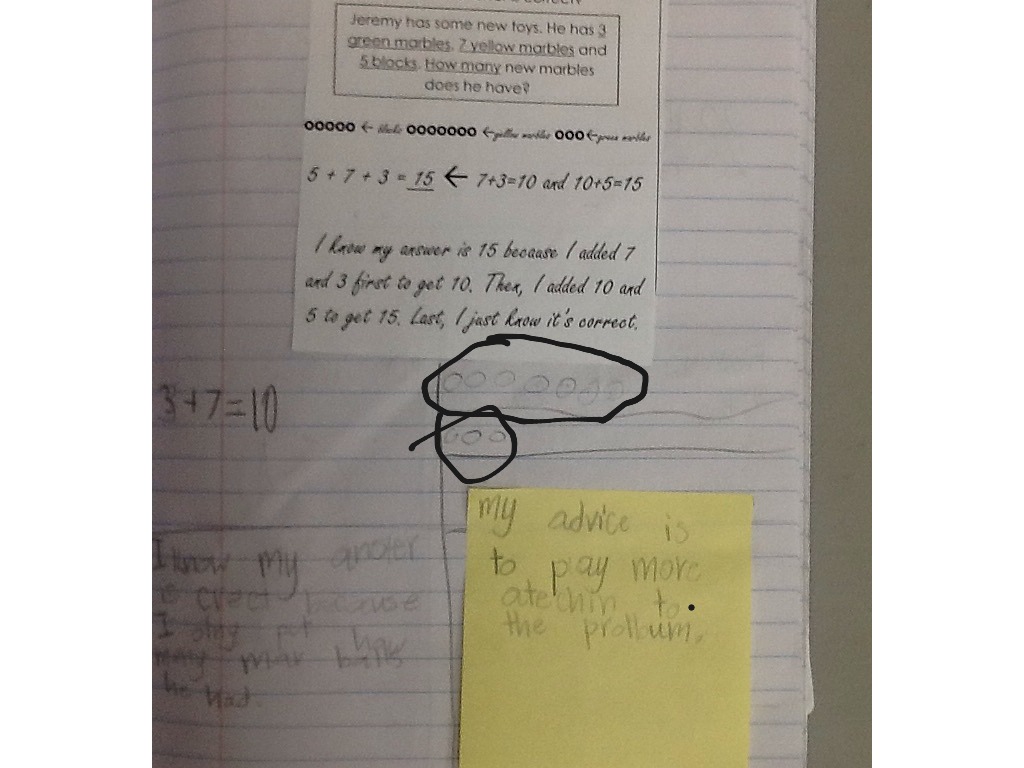 Jeremy has some new toys. He has 3
green marbles, 7 yellow marbles and
5 blocks. How many new marbles
does he have?
00000 ← blocks 0000000 ← yellow marbles 000 ← green marbles
5 + 7 + 3 = 15 ← 7+3=10 and 10+5=15
I know my answer is 15 because I added 7
and 3 first to get 10. Then, I added 10 and
5 to get 15. Last, I just know it's correct.
3+7=10
I know my
because
I put how
he had.
my advice is
to pay more
atechin to
the prolbum.